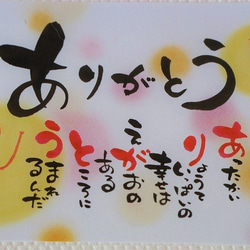 ありがとう
あたたかい
りょうて
いっぱいの
幸せは
えがおの
ある
ところに
うまれ
るんだ